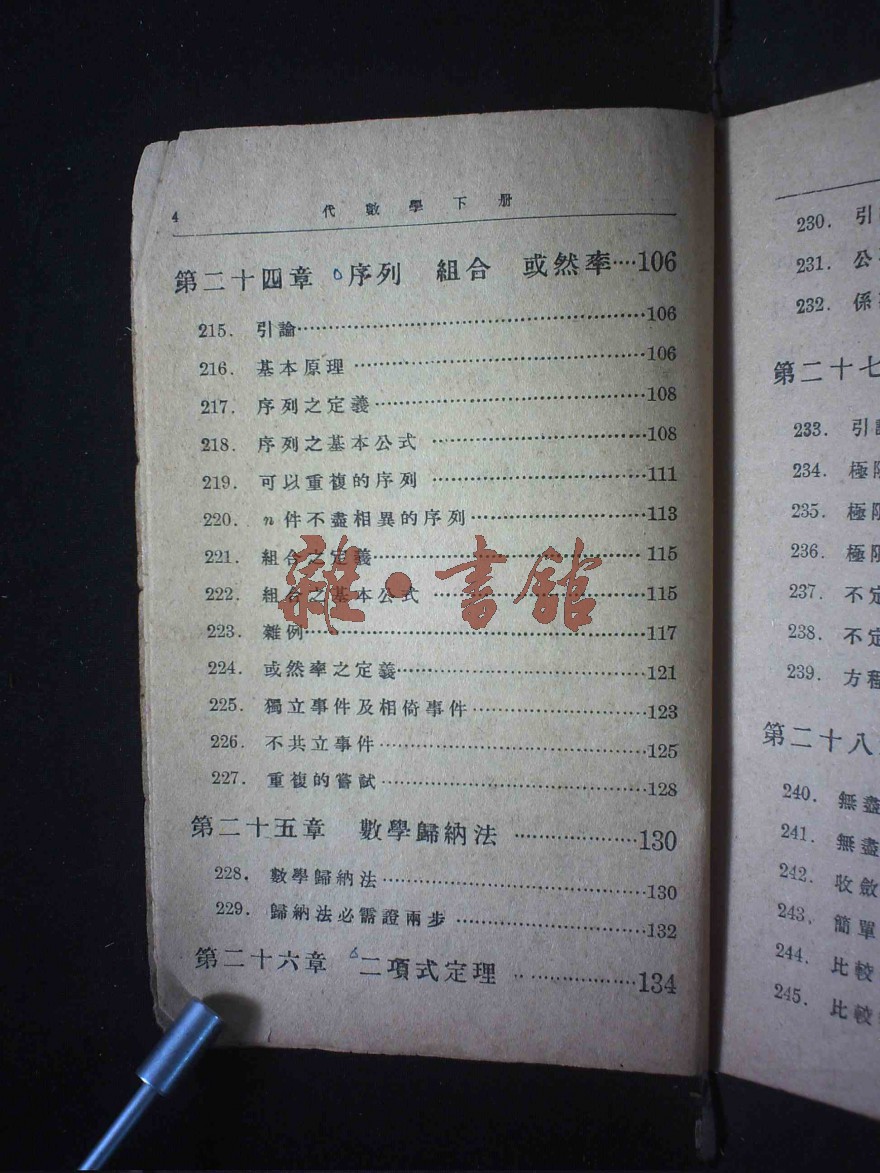 4 代數學下册
第二十四章 序列 組合 或然率····106
215. 引論········106
216. 基本原理········106
217. 序列之定義········108
218. 序列之基本公式········108
219. 可以重複的序列········111
220. n件不盡相異的序列········113
221. 組合之定義········115
222. 組合之基本公式········115
223. 雜例········117
224. 或然率之定義········121
225. 獨立事件及相倚事件········123
226. 不共立事件········125
227. 重複的嘗試········128
第二十五章 數學歸納法········130
228. 數學歸納法········130
229. 歸納法必需證兩步········132
第二十六章 二項式定理········134
雜·書館
230. 引
231. 公
232. 係
第二十七
233. 引
234. 極限
235. 極限
236. 極限
237. 不定
238. 不定
239. 方程
第二十八
240. 無盡
241. 無盡
242. 收斂
243. 簡單
244. 比較
245. 比較